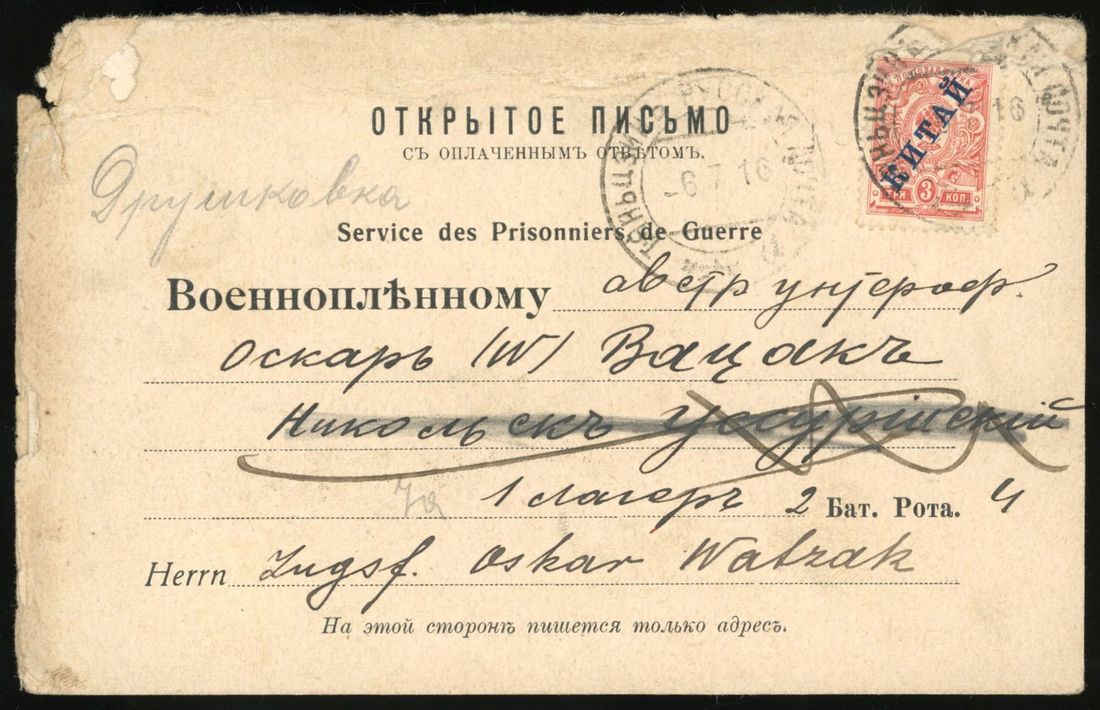 ОТКРЫТОЕ ПИСЬМО
СЪ ОПЛАЧЕННЫМЪ ОТВѢТОМЪ.
Дружковка
Service des Prisonniers de Guerre
Военноплѣнному австр унтерофф.
Оскаръ (W) Вацакъ
Никольскъ Уссурійскій
1 лагеръ 2 Бат. Рота. 4
Herrn Zugsf. Oskar Watzak
На этой сторонѣ пишется только адресъ.
КИТАЙ
ТРИ 3 КОП.
ТЯНЬЦЗИНЪ РУССКАЯ ПОЧТА
-6 7 16